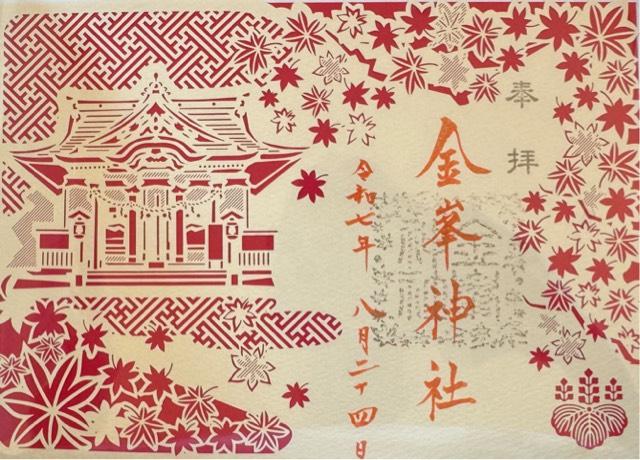 奉拝
金峯神社
令和七年 八月二十四日